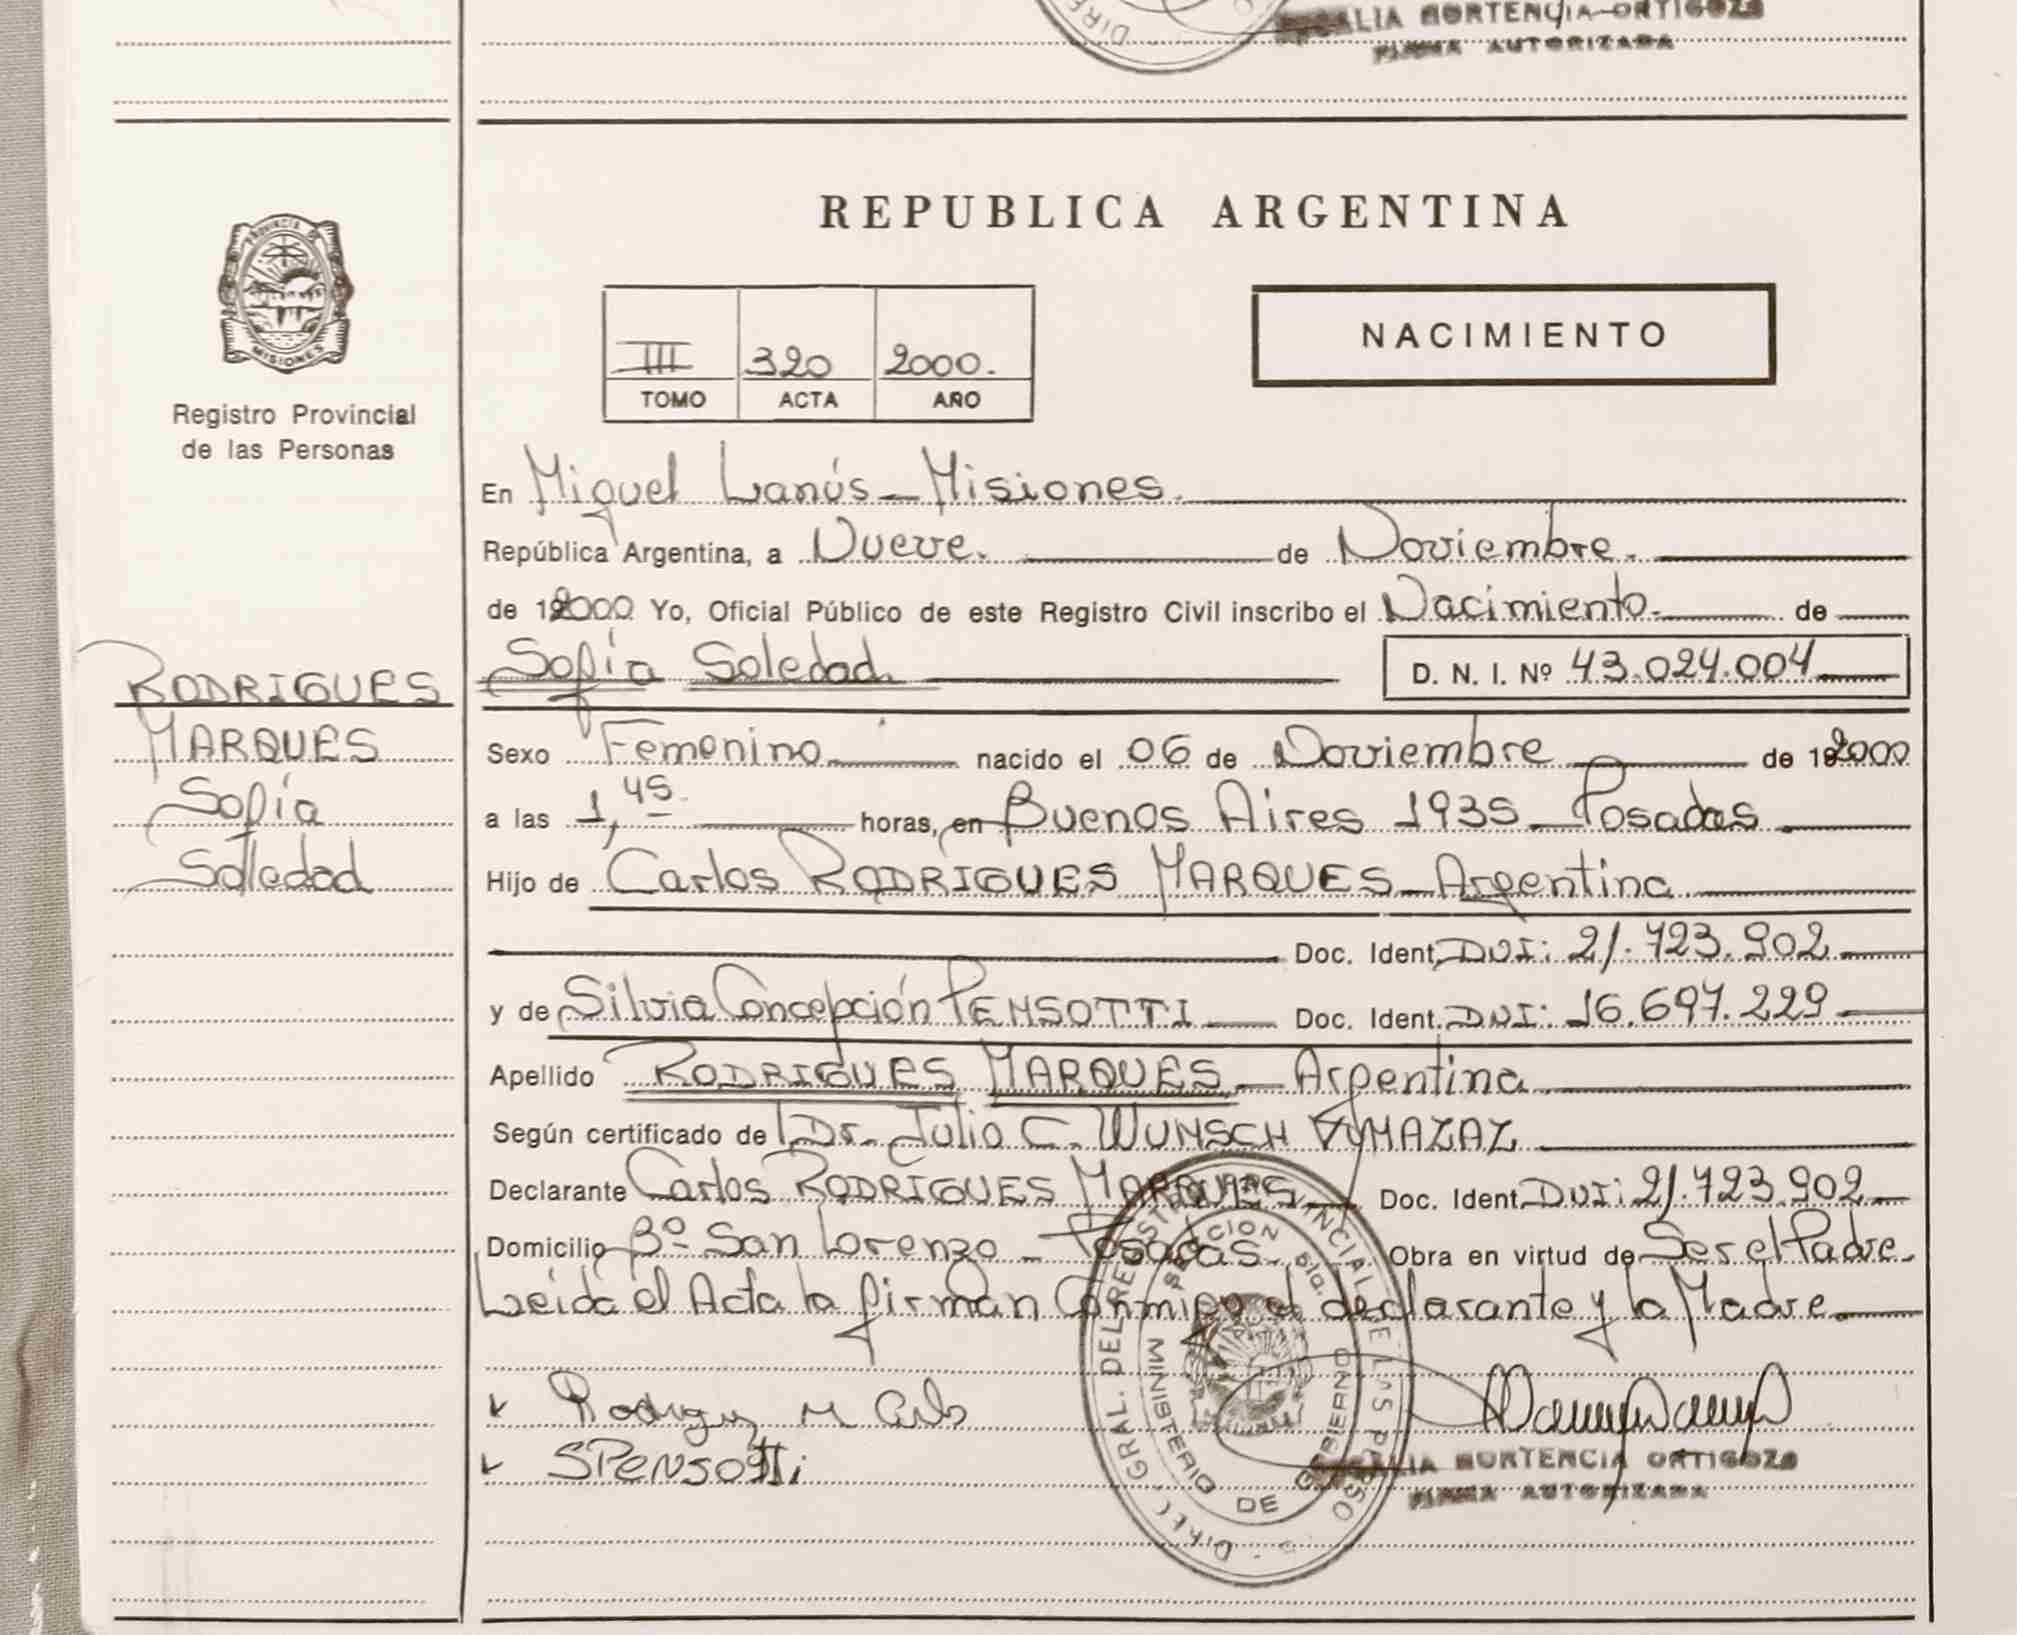 ORTENCIA ORTIGOZA
FIRMA AUTORIZADA
PROVINCIA DE
MISIONES
Registro Provincial
de las Personas
REPUBLICA ARGENTINA
III 320 2000.
TOMO ACTA AÑO
NACIMIENTO
En Miguel Lanús - Misiones.
República Argentina, a Nueve. de Noviembre.
de 2000 Yo, Oficial Público de este Registro Civil inscribo el Nacimiento. de
RODRIGUES
MARQUES
Sofía
Soledad
Sofía Soledad. D. N. I. Nº 43.024.004
Sexo Femenino nacido el 06 de Noviembre de 2000
a las 1,45 horas, en Buenos Aires 1935 - Posadas
Hijo de Carlos RODRIGUES MARQUES - Argentina
Doc. Ident. DNI: 21.723.902
y de Silvia Concepción PENSOTTI Doc. Ident. DNI: 16.697.229
Apellido RODRIGUES MARQUES - Argentina
Según certificado de Dr. Julio C. WUNSCH
Declarante Carlos RODRIGUES MARQUES Doc. Ident. DNI: 21.723.902
Domicilio Bº San Lorenzo - Posadas. Obra en virtud de Ser el Padre.
Leída el Acta la firman Conmigo el declarante y la Madre
Rodrigues M Carlos
SPENSOTTi
HORTENCIA ORTIGOZA
FIRMA AUTORIZADA
MINISTERIO DE GOBIERNO